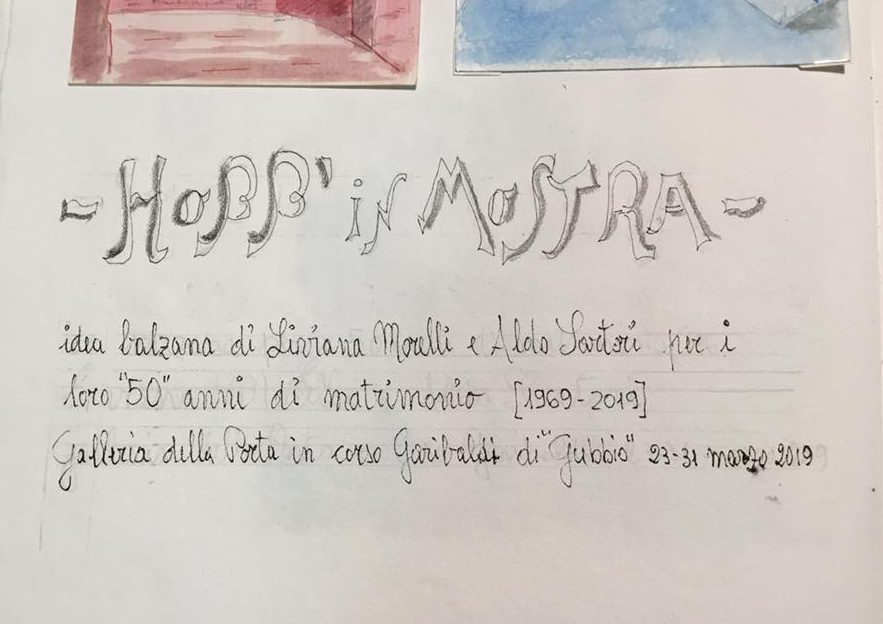 - HOBB' iN MOSTRA -
idea balzana di Liviana Morelli e Aldo Sartori per i
loro "50" anni di matrimonio [1969-2019]
Galleria della Porta in corso Garibaldi di "Gubbio" 23-31 marzo 2019